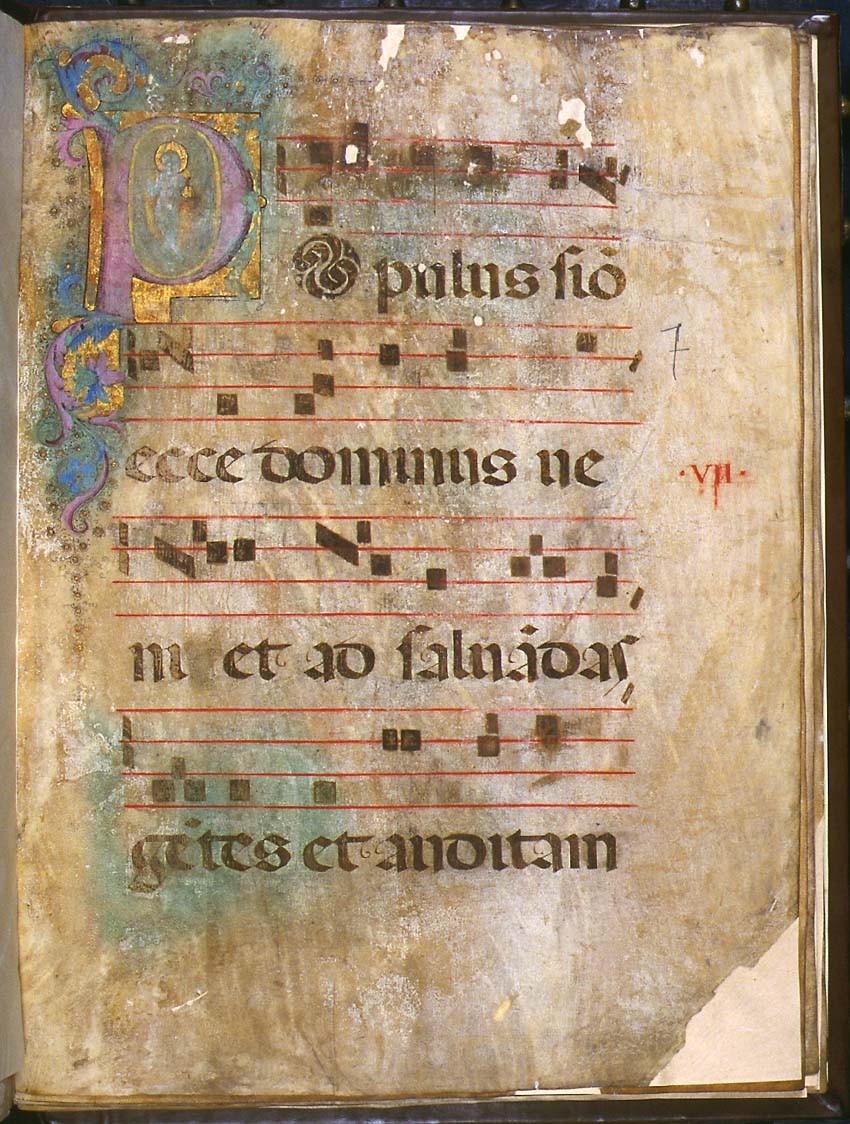 POpulus siō
7
ecce dominus ue
·VII·
ni et ad saluādas
gētes et auditam